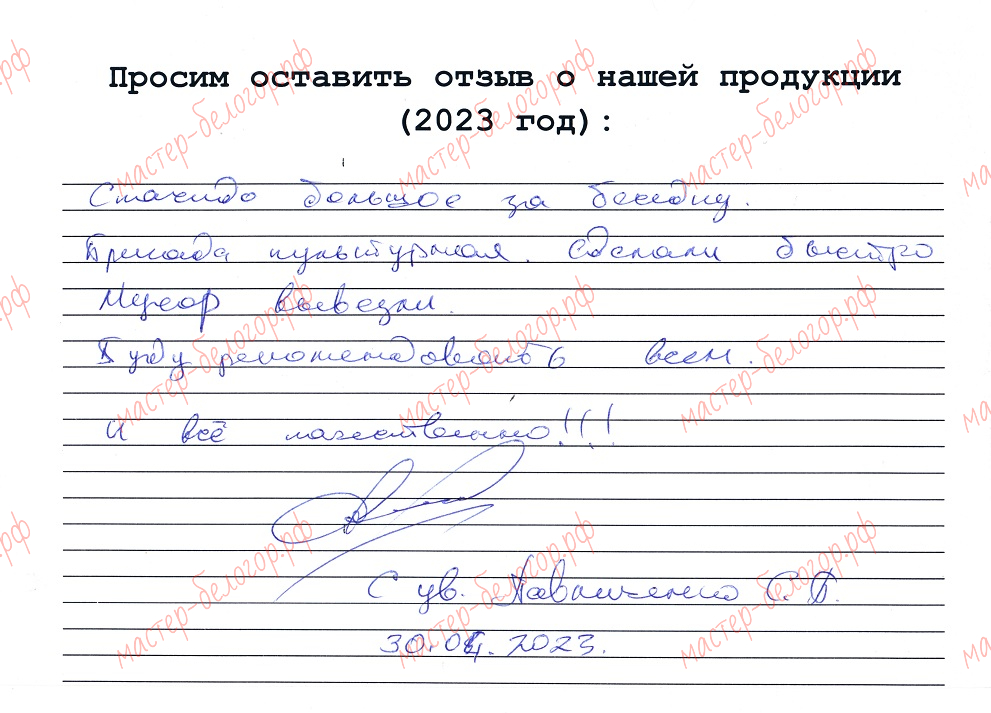 Просим оставить отзыв о нашей продукции
(2023 год):
Спасибо большое за беседку.
Бригада культурная. Сделали быстро
Мусор вывезли.
Буду рекомендовать всем.
И всё качественно!!!
С ув.
30.04.2023.
мастер-белогор.рф